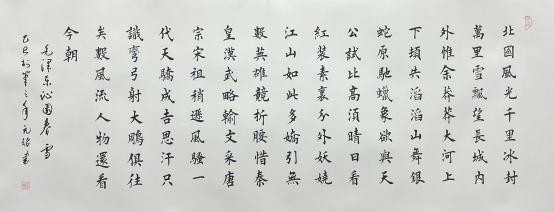 北國風光千里冰封
萬里雪飄望長城內
外惟余莽莽大河上
下頓失滔滔山舞銀
蛇原馳蠟象欲與天
公試比高須晴日看
紅裝素裹分外妖嬈
江山如此多嬌引無
數英雄競折腰惜秦
皇漢武略輸文采唐
宗宋祖稍遜風騷一
代天驕成吉思汗只
識彎弓射大鵰俱往
矣數風流人物還看
今朝
毛澤東沁園春雪
乙巳